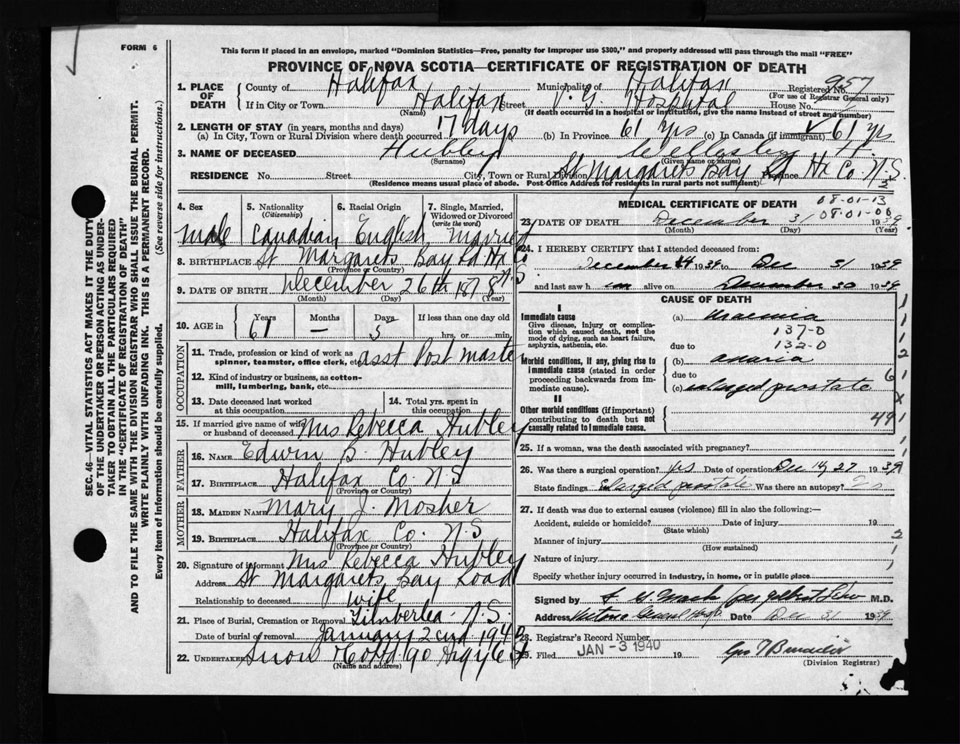 FORM 6
This form if placed in an envelope, marked "Dominion Statistics—Free, penalty for improper use $300," and properly addressed will pass through the mail "FREE"
PROVINCE OF NOVA SCOTIA—CERTIFICATE OF REGISTRATION OF DEATH
SEC. 46—VITAL STATISTICS ACT MAKES IT THE DUTY
OF THE UNDERTAKER OR PERSON ACTING AS UNDER-
TAKER TO OBTAIN ALL THE PARTICULARS REQUIRED
IN THE "CERTIFICATE OF REGISTRATION OF DEATH"
AND TO FILE THE SAME WITH THE DIVISION REGISTRAR WHO SHALL ISSUE THE BURIAL PERMIT.
WRITE PLAINLY WITH UNFADING INK. THIS IS A PERMANENT RECORD.
Every item of information should be carefully supplied. (See reverse side for instructions.)
1. PLACE OF DEATH County of Halifax Municipality of Halifax Registered No. 957
(For use of Registrar General only)
If in City or Town Halifax Street V. G. Hospital House No.
(Name) (If death occurred in a hospital or institution, give the name instead of street and number)
2. LENGTH OF STAY (in years, months and days)
(a) In City, Town or Rural Division where death occurred 17 days (b) In Province 61 Yrs (c) In Canada (if immigrant) 61 Yrs
3. NAME OF DECEASED Hubley Wellesley
(Surname) (Given name or names)
RESIDENCE No. Street City, Town or Rural Division St Margarets Bay Rd Province Hx Co. N.S.
(Residence means usual place of abode. Post Office Address for residents in rural parts not sufficient)
4. Sex 5. Nationality (Citizenship) 6. Racial Origin 7. Single, Married, Widowed or Divorced (write the word)
Male Canadian English Married
8. BIRTHPLACE St Margarets Bay Rd Hx Co N.S.
(Province or Country)
9. DATE OF BIRTH December 26th 1878
(Month) (Day) (Year)
10. AGE in Years Months Days If less than one day old
61 — 5 hrs. or min.
OCCUPATION
11. Trade, profession or kind of work as spinner, teamster, office clerk, etc. asst Post master
12. Kind of industry or business, as cotton-mill, lumbering, bank, etc.
13. Date deceased last worked at this occupation 14. Total yrs. spent in this occupation
15. If married give name of wife or husband of deceased Mrs Rebecca Hubley
FATHER
16. NAME Edwin B. Hubley
17. BIRTHPLACE Halifax Co. N S
(Province or Country)
MOTHER
18. MAIDEN NAME Mary J. Mosher
19. BIRTHPLACE Halifax Co. N.S
(Province or Country)
20. Signature of informant Mrs Rebecca Hubley
Address St Margarets Bay Road
Relationship to deceased wife
21. Place of Burial, Cremation or Removal Timberlea N.S.
Date of burial or removal January 2nd 1940
22. UNDERTAKER Snow & Co Ltd 90 Argyle St
(Name and address)
MEDICAL CERTIFICATE OF DEATH
08-01-13
08-01-00
23. DATE OF DEATH December 31 1939
(Month) (Day) (Year)
24. I HEREBY CERTIFY that I attended deceased from:
December 14 1939 to Dec 31 1939
and last saw him alive on December 30 1939
CAUSE OF DEATH
I
Immediate cause (a) Uraemia
Give disease, injury or complication which caused death, not the mode of dying, such as heart failure, asphyxia, asthenia, etc.
137-0
due to 132-0
Morbid conditions, if any, giving rise to immediate cause (stated in order proceeding backwards from immediate cause). (b) anuria
due to 6
(c) enlarged prostate
II
Other morbid conditions (if important) contributing to death but not causally related to immediate cause. 49
25. If a woman, was the death associated with pregnancy?
26. Was there a surgical operation? yes Date of operation Dec 14, 27 1939
State findings Enlarged prostate Was there an autopsy?
27. If death was due to external causes (violence) fill in also the following:—
Accident, suicide or homicide? Date of injury 19
(State which)
Manner of injury
(How sustained)
Nature of injury
Specify whether injury occurred in industry, in home, or in public place
Signed by M.D.
Address Victoria Gen Hosp. Date Dec 31 1939
28. Registrar's Record Number
29. Filed JAN -3 1940 19
(Division Registrar)